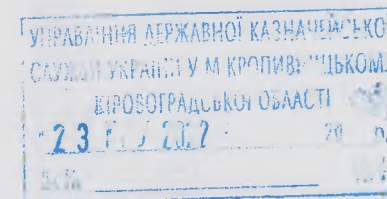 УПРАВЛІННЯ ДЕРЖАВНОЇ КАЗНАЧЕЙСЬКО
СЛУЖБИ УКРАЇНИ У М КРОПИВНИЦЬКОМ
КІРОВОГРАДСЬКОЇ ОБЛАСТІ
"23 20